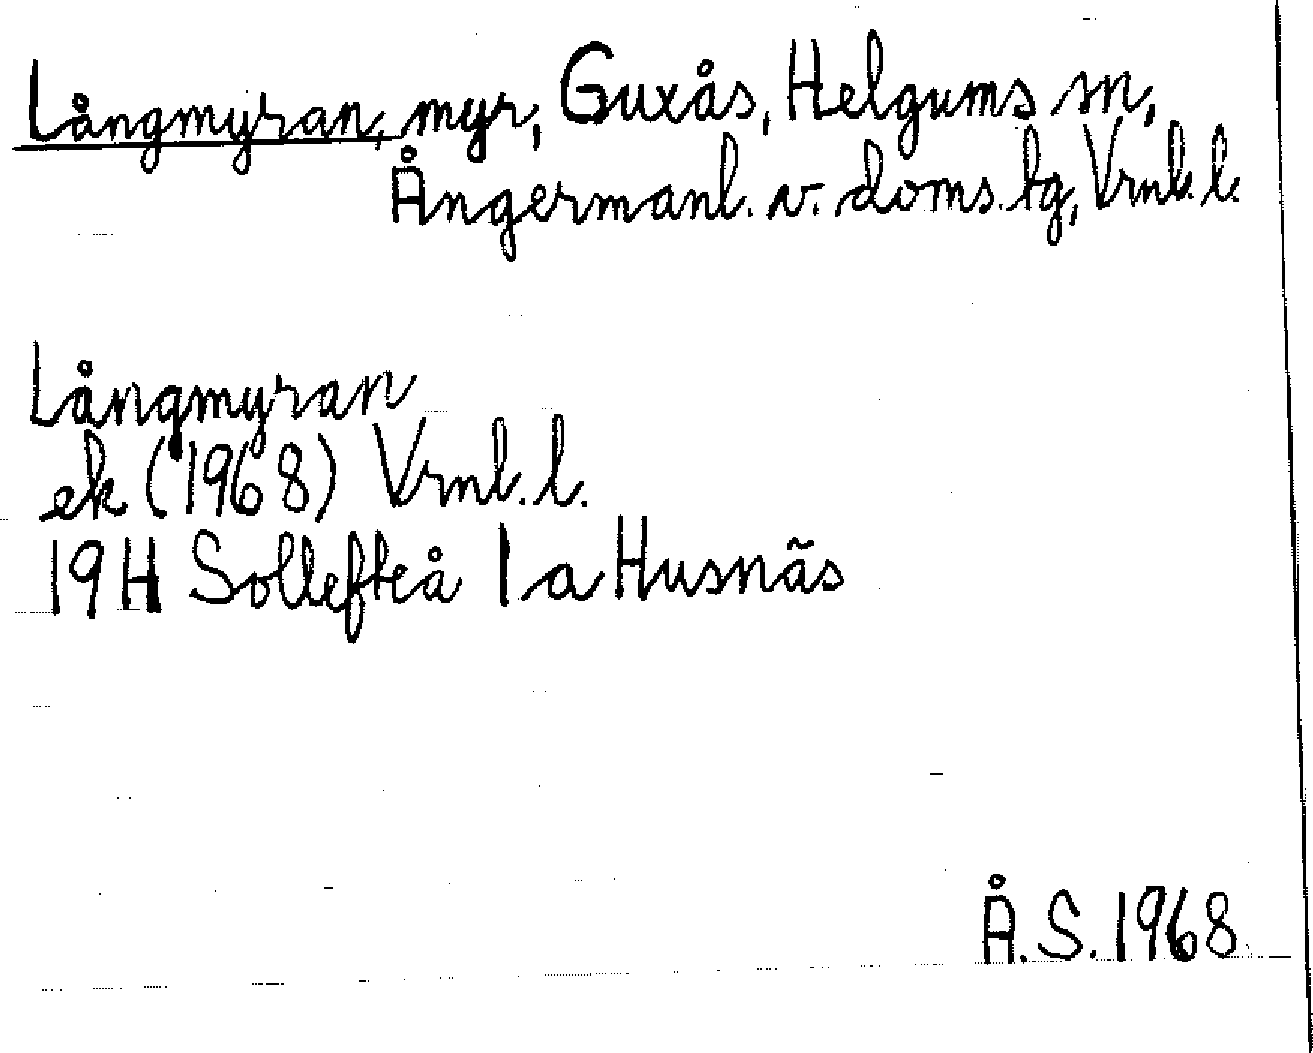 Långmyran, myr, Guxås, Helgums sn,
Ångermanl. v. doms. tg, Vrnl. l.
Långmyran
ek (1968) Vrnl. l.
19H Sollefteå 1 a Husnäs
Å.S. 1968